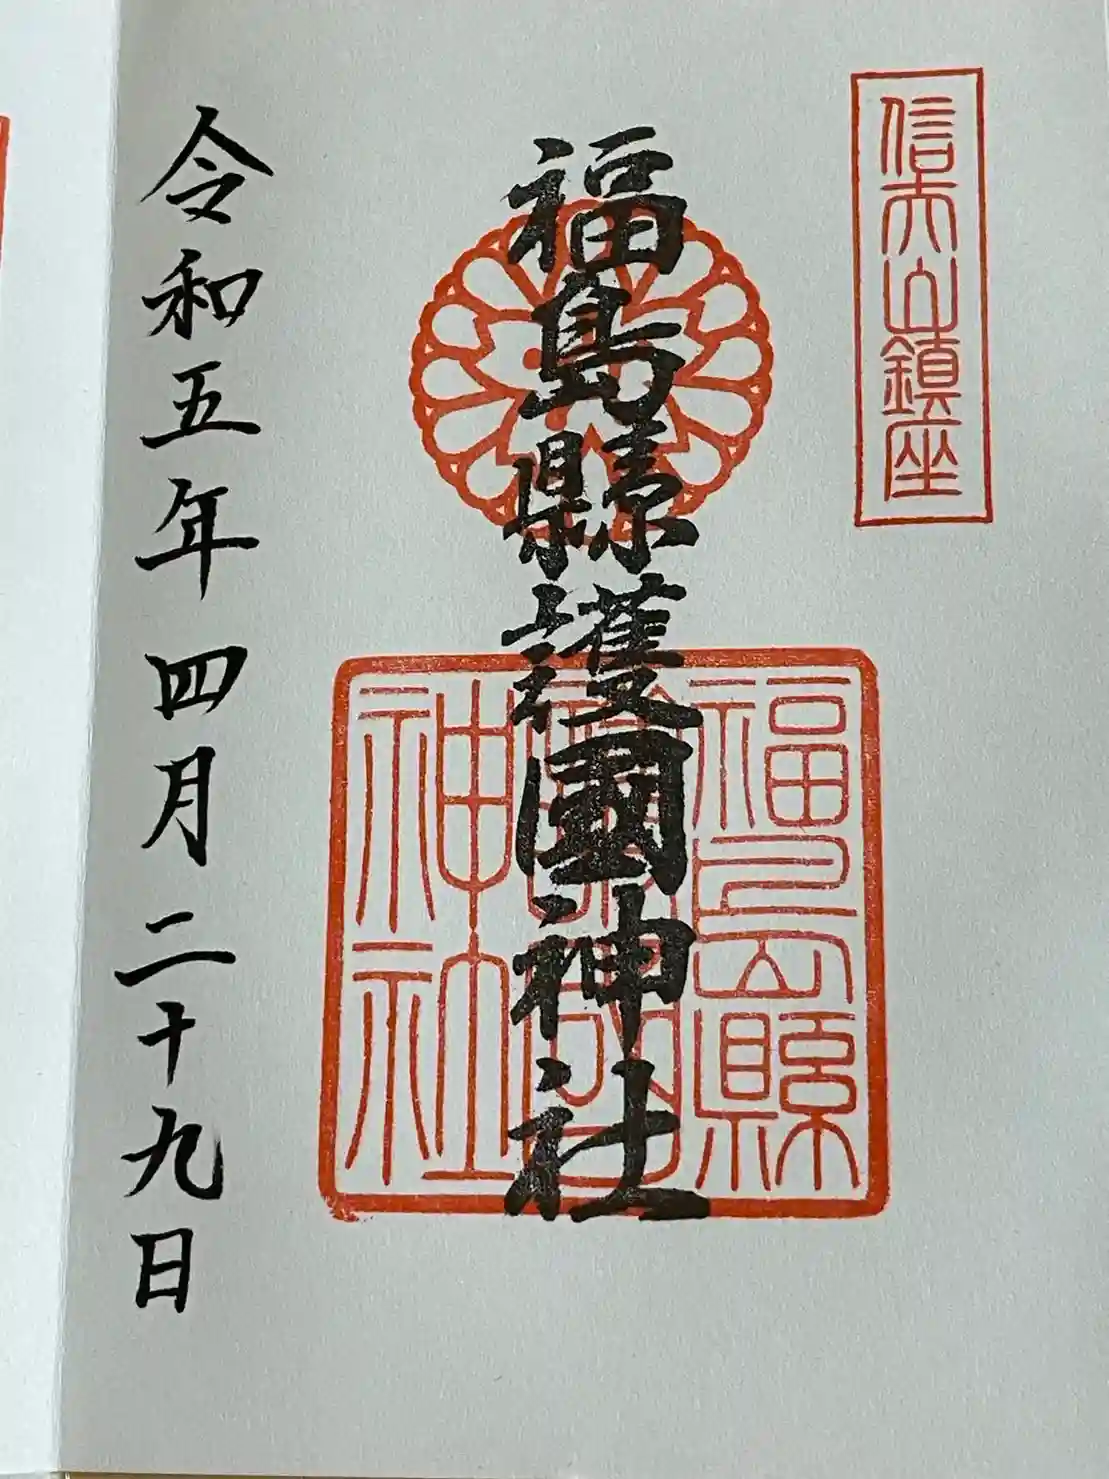 信夫山鎮座
福島縣護國神社
福島縣
神社
令和五年四月二十九日